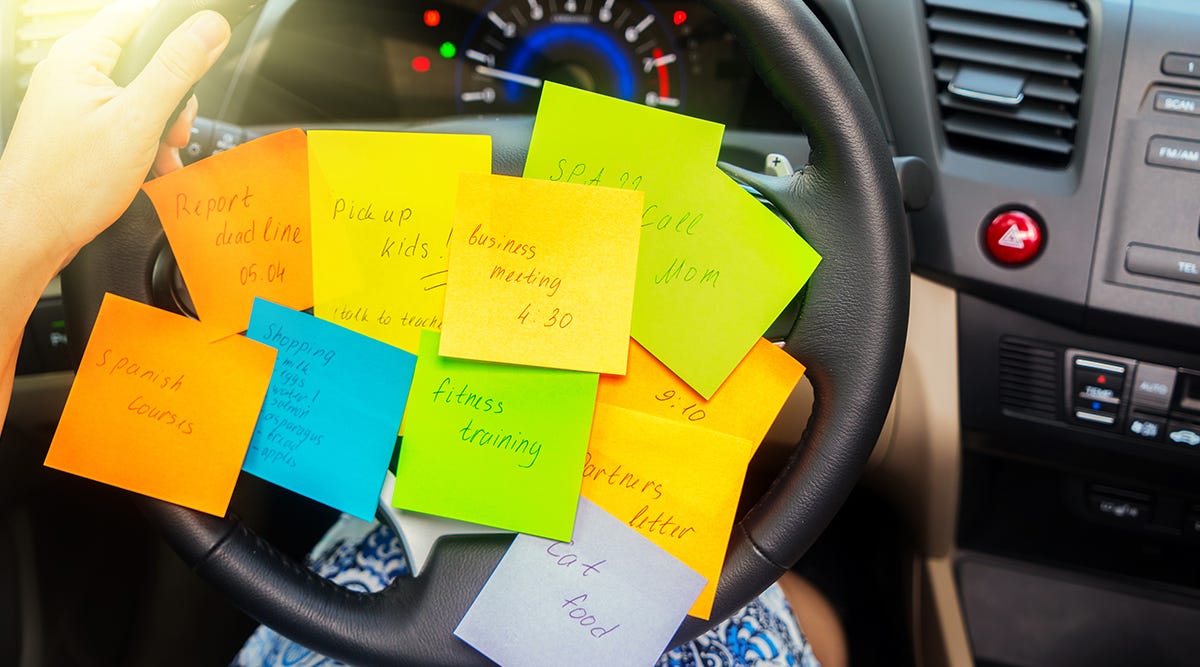 Report
deadline
05.04
Pick up
kids!
! talk to teache
business
meeting
4:30
SPA ??
Call
Mom
Spanish
courses
Shopping
- milk
- eggs
- water!
- salmon
- asparagus
- bread
- apples
fitness
training
9:10
Partners
letter
Cat
food
SCAN
FM/AM
TEL
TEMP
AUTO